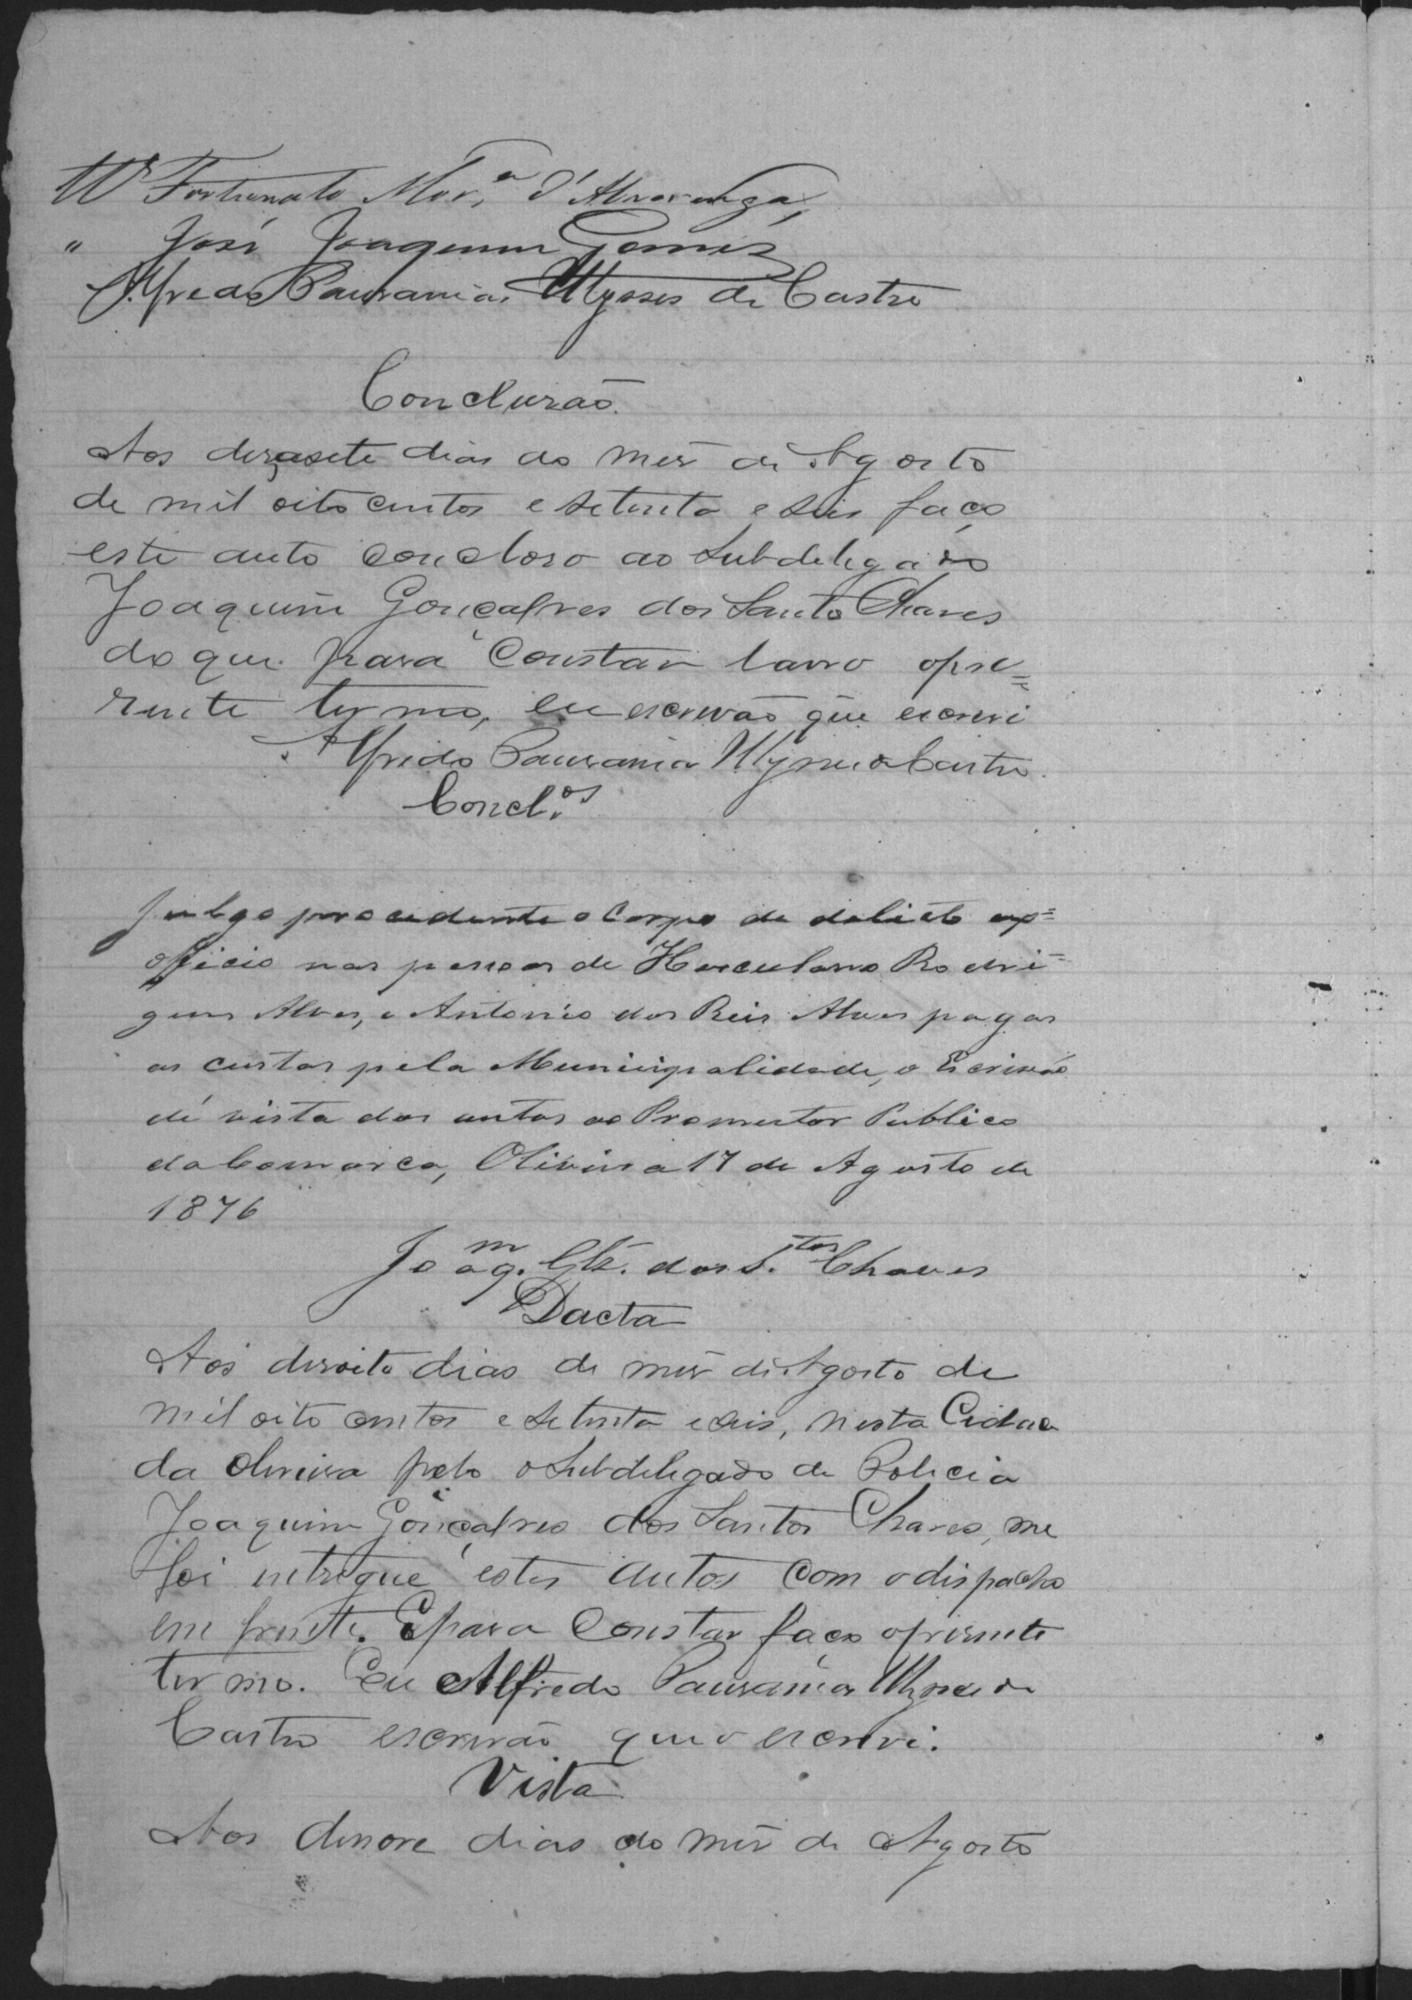 Fortunato Mor.ª d'Alvarenga,
" José Joaquim Gomes
Alfredo Pausania Ulysses de Castro
Conclusão.
Aos dezasete dias do mes de Agosto
de mil oito centos e setenta e seis faço
este auto concloso ao Subdelegado
Joaquim Gonçalves dos Santo Chaves
do que para constar lavro o pre=
zente termo, eu escrevão que escrevi
Alfredo Pausania Ulysses de Castro.
Concl.os
Julgo procedente o Corpo de delicto ex=
officio nas pessoas de Herculano Rodri=
gues Alves, e Antonio dos Reis Alves pagas
as custas pela Municipalidade, o Escrivão
dê vista dos autos ao Promutor Publico
da Comarca, Oliveira 17 de Agosto de
1876
Joaq.m Glz. dos S.tos Chaves
Dacta
Aos desoito dias de mês de Agosto de
mil oito centos e setenta e seis, nesta Cidade
da Oliveira pelo o Subdelegado de Policia
Joaquim Gonçalves dos Santos Chaves, me
foi entregue estes autos com o dispacho
em frente. E para constar faço o prezente
termo. Eu Alfredo Pausania Ulysses de
Castro escrevão que o escrevi.
Vista
Aos desnove dias do mês de Agosto